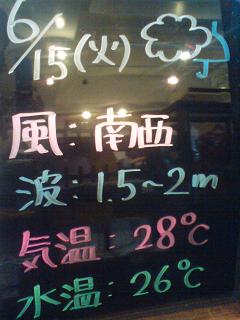 6/15(火)
風:南西
波:1.5~2m
気温:28℃
水温:26℃